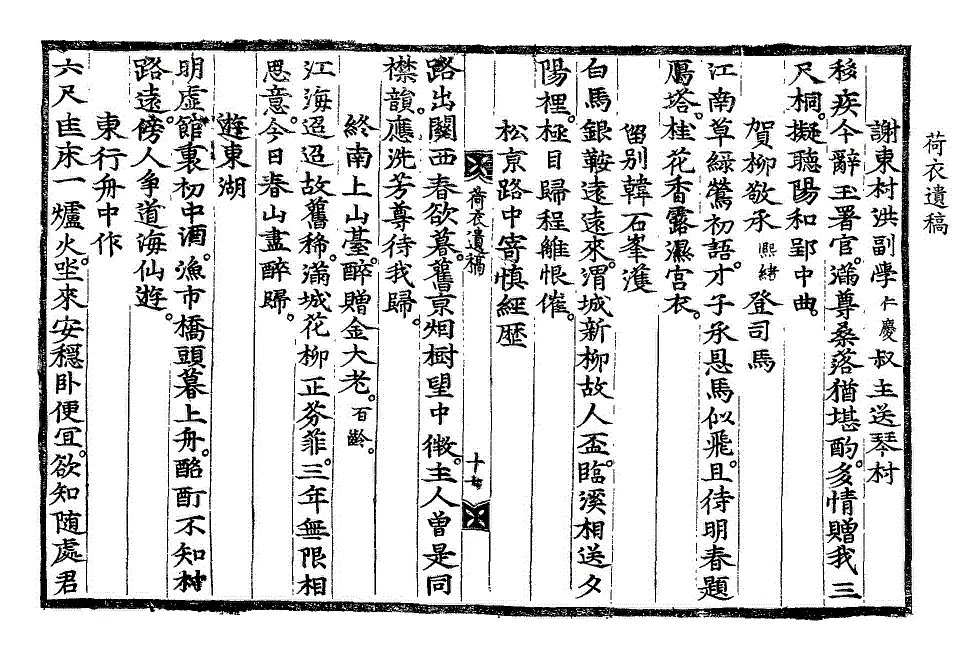 荷衣遺稿
謝東村洪副學仁慶叔主送琴村
移疾今辭玉署官。滿尊桑落猶堪酌。多情贈我三
尺桐。擬聽陽和郢中曲。
賀柳敬承熙緖登司馬
江南草綠鶯初語。才子承恩馬似飛。且待明春題
鴈塔。桂花香露濕宮衣。
留別韓石峯濩
白馬銀鞍遠遠來。渭城新柳故人盃。臨溪相送夕
陽裡。極目歸程離恨催。
松京路中寄愼經歷
荷衣遺稿
路出關西春欲暮。舊京烟樹望中微。主人曾是同
襟韻。應洗芳尊待我歸。
終南上山臺。醉贈金大老。百齡。
江海迢迢故舊稀。滿城花柳正芬菲。三年無限相
思意。今日春山盡醉歸。
遊東湖
明虛館裏初中酒。漁市橋頭暮上舟。酩酊不知村
路遠。傍人爭道海仙遊。
東行舟中作
六尺匡床一爐火。坐來安穩卧便宜。欲知隨處君